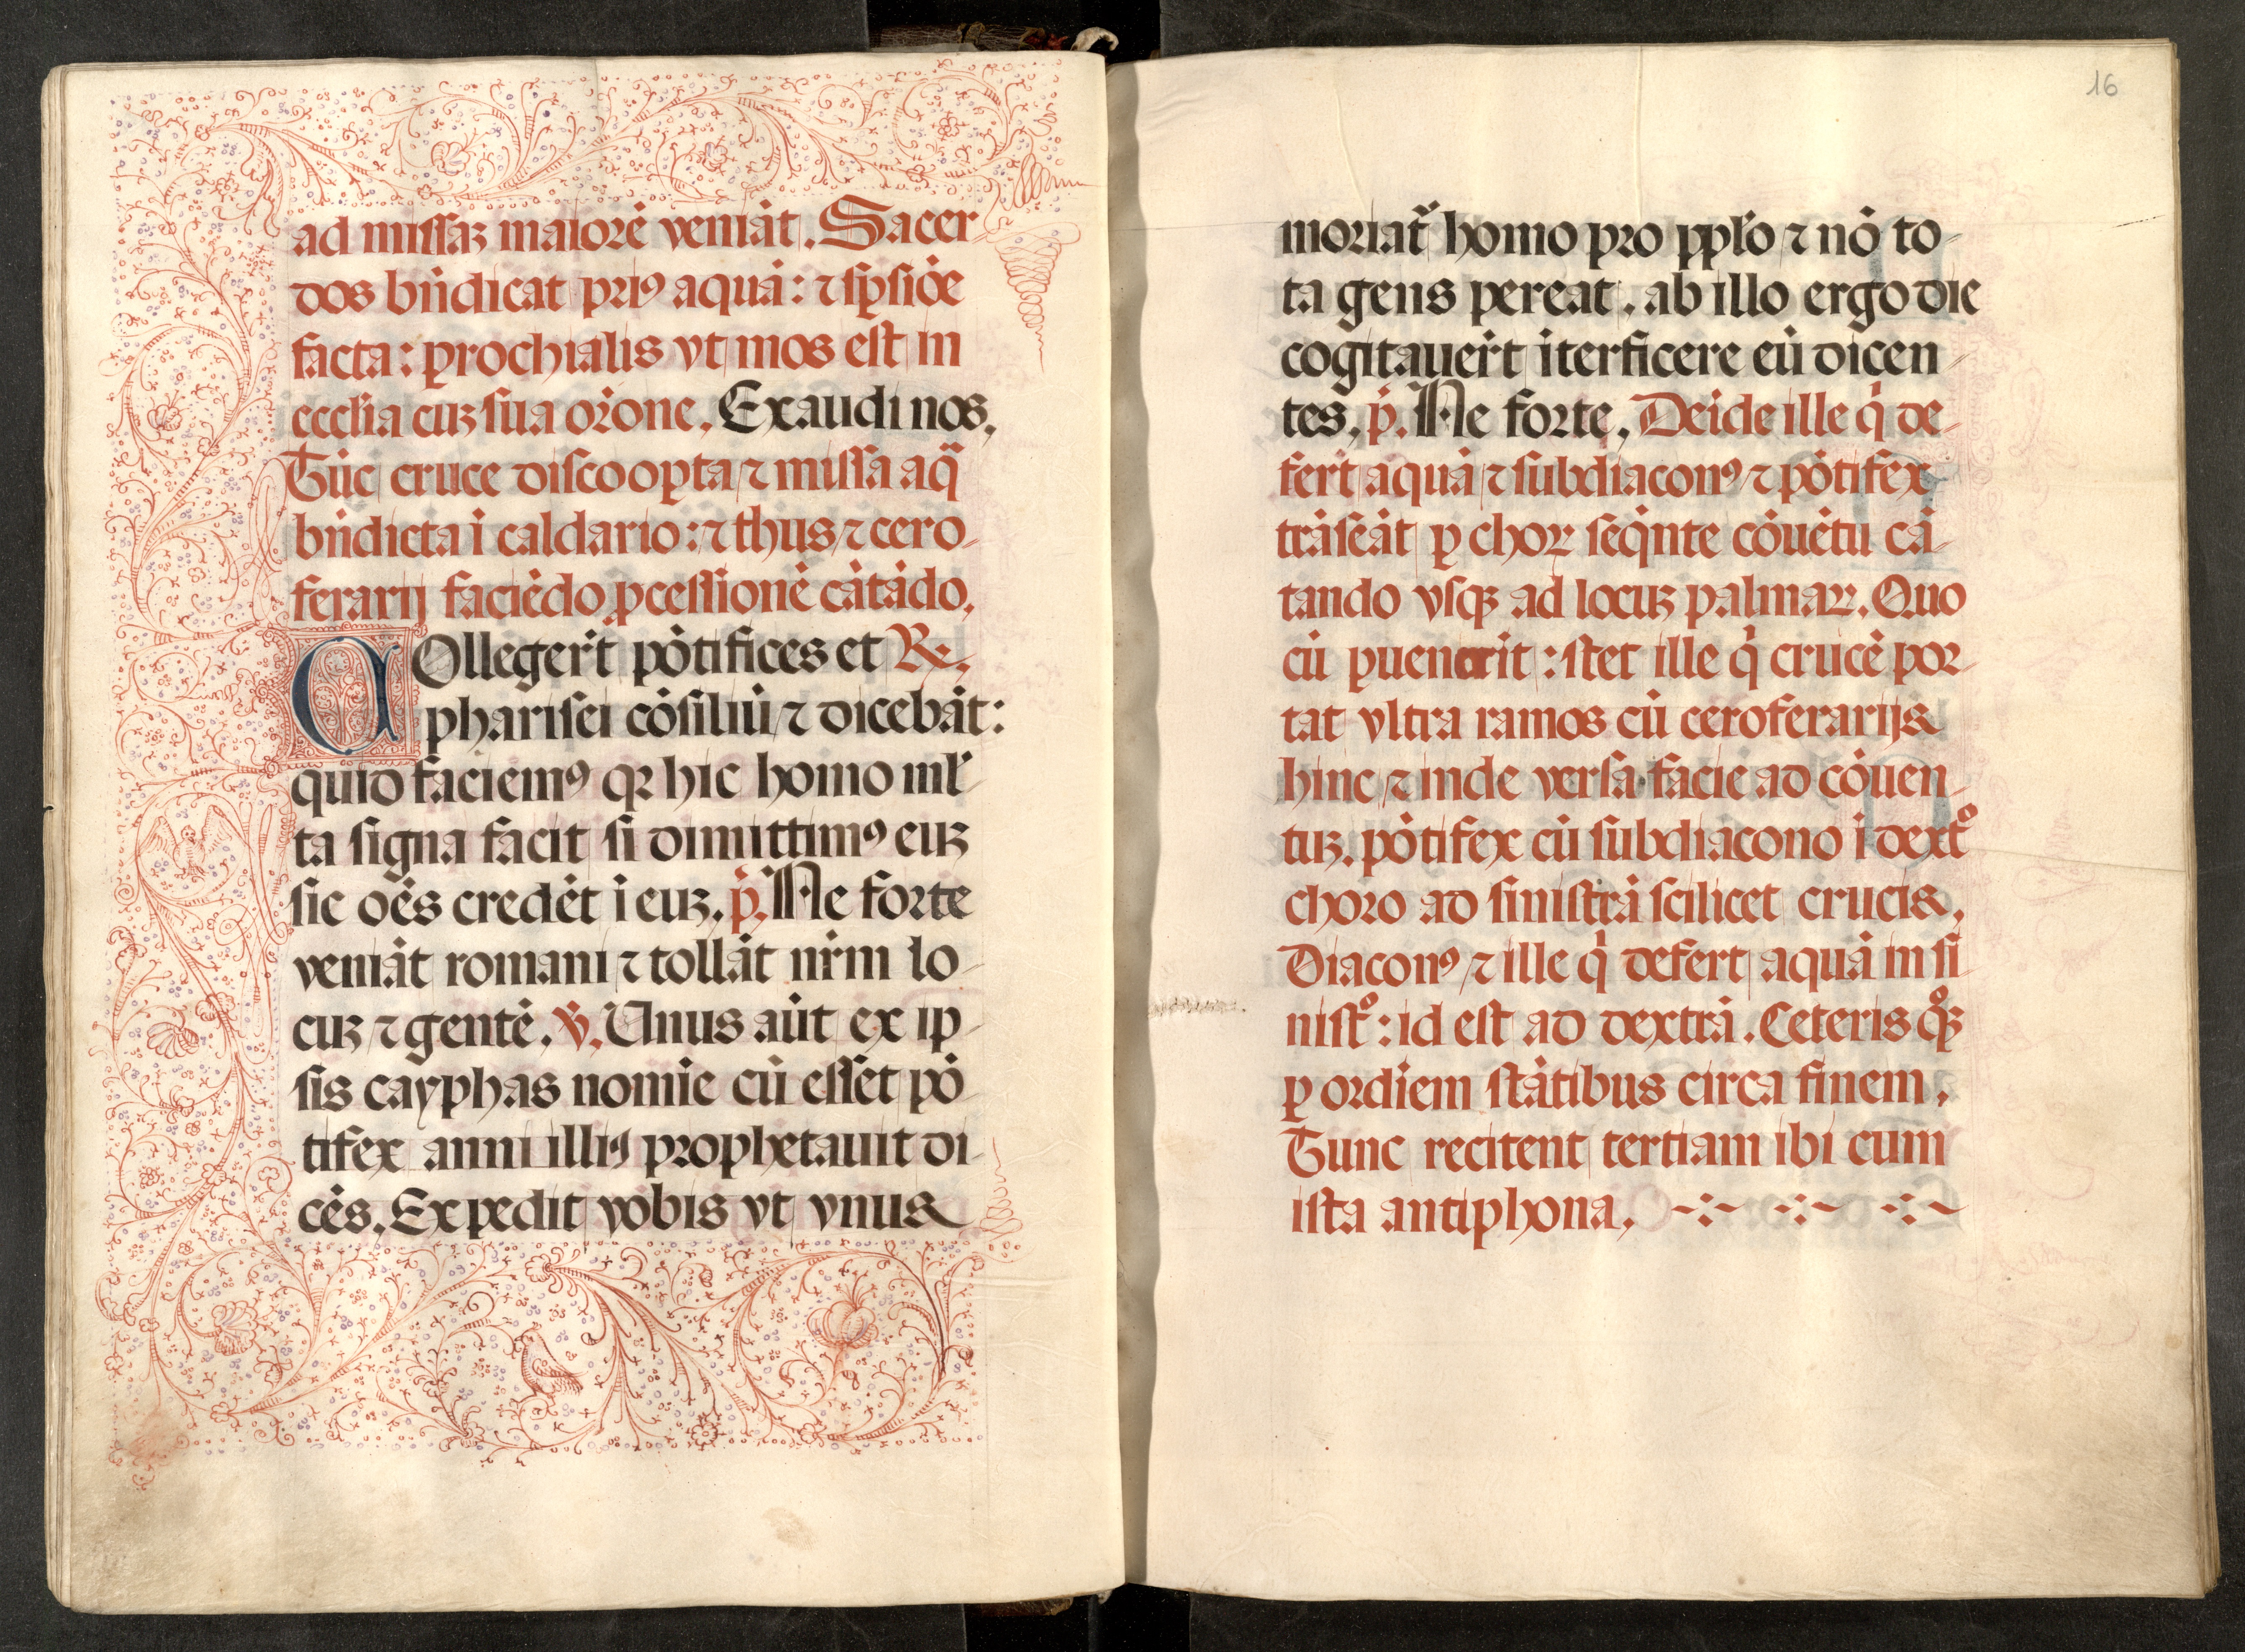 ad missaꝫ maiorē veniāt. Sacer-
dos bn̄dicat priꝰ aquā: ⁊ sꝑsiōe
facta: ꝑrochialis vt mos est in
eccl̄ia cuꝫ sua or̄one. Exaudi nos.
Tūc cruce discooꝑta ⁊ missa aq̄
bn̄dicta ī caldario: ⁊ thus ⁊ cero-
ferarij faciēdo ꝓcessionē cātādo.
COllegerūt pōtifices et Re.
pharisei cōsiliū ⁊ dicebāt:
quid faciemꝰ qꝛ hic homo ml̄-
ta signa facit si dimittimꝰ euꝫ
sic oēs credēt ī euꝫ. p̄. Ne forte
veniāt romani ⁊ tollāt nr̄m lo-
cuꝫ ⁊ gentē. ℣. Unus aūt ex ip-
sis cayphas nomīe cū esset pō-
tifex anni illiꝰ prophetauit di-
cēs. Expedit vobis vt vnus
16
moriat᷑ homo pro ppl̄o ⁊ nō to-
ta gens pereat. ab illo ergo die
cogitauer̄t īterficere eū dicen-
tes. p̄. Ne forte. Deīde ille qͥ de-
fert aquā ⁊ subdiaconꝰ ⁊ pōtifex
trāseāt ꝑ choꝝ seqͥnte cōuētu cā-
tando vsqꝫ ad locuꝫ palmaꝝ. Quo
cū ꝑuenerit: stet ille qͥ crucē por-
tat vltra ramos cū ceroferarijs
hinc ⁊ inde versa facie ad cōuen-
tuꝫ. pōtifex cū subdiacono ī dextͦ
choro ad sinistrā scilicet crucis.
Diaconꝰ ⁊ ille qͥ defert aquā in si-
nistͦ: id est ad dextrā. Ceteris qͦꝫ
ꝑ ordīem stātibus circa finem.
Tunc recitent tertiam ibi cum
ista antiphona.